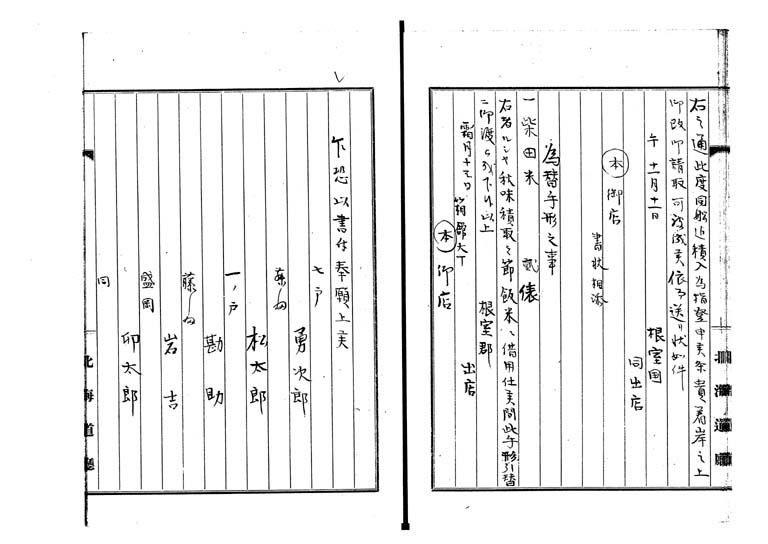 右之通此度同船辺積入為指登申美条貴着岸之上
御改御請取可被成美依而送り状如件
午十一月十一日
根室国
同出店
本御店
書状相添
為替手形之事
一柴田米 弐俵
右者ルシヤ秋味積取之節飯米ニ借用仕美間此手形引替
ニ御渡可被下候以上
根室郡
出店
霜月十三日
箱館大丁
本御店
乍恐以書付奉願上美
七ノ戸
勇次郎
松太郎
一ノ戸
勘助
藤
岩吉
盛岡
卯太郎
同
北海道庁